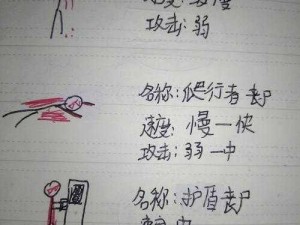 攻击: 弱
名称: 爬行者丧尸
速度: 慢一快
攻击: 弱一中
名称: 护盾丧尸